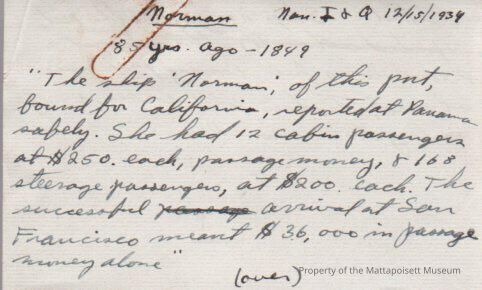 Norman Nan. I & Q 12/15/1934
85 yrs. ago - 1849
"The ship 'Norman', of this port,
bound for California, reported at Panama
safely. She had 12 cabin passengers
at $250. each, passage money, & 168
steerage passengers, at $200. each. The
successful passage arrival at San
Francisco meant $36,000 in passage
money alone"
(over)
Property of the Mattapoisett Museum